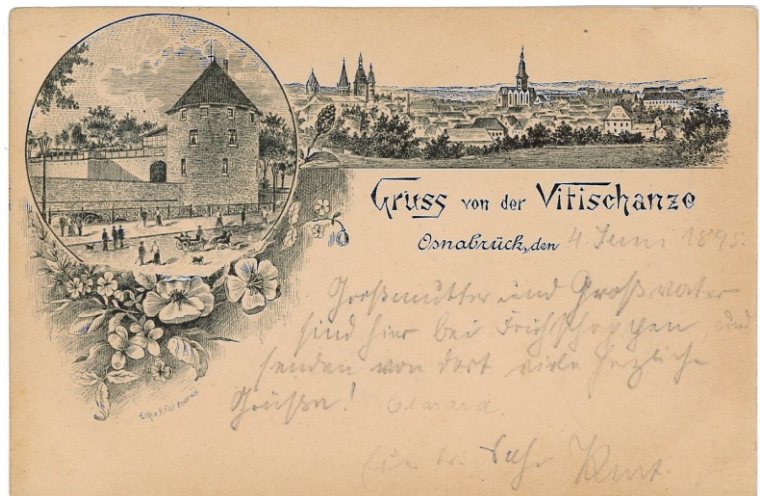 Gruss von der Vitischanze
Osnabrück, den 4. Juni 1895.
Großmutter und Großvater
sind hier bei Frühschoppen und
senden von dort viele herzliche
Grüße!